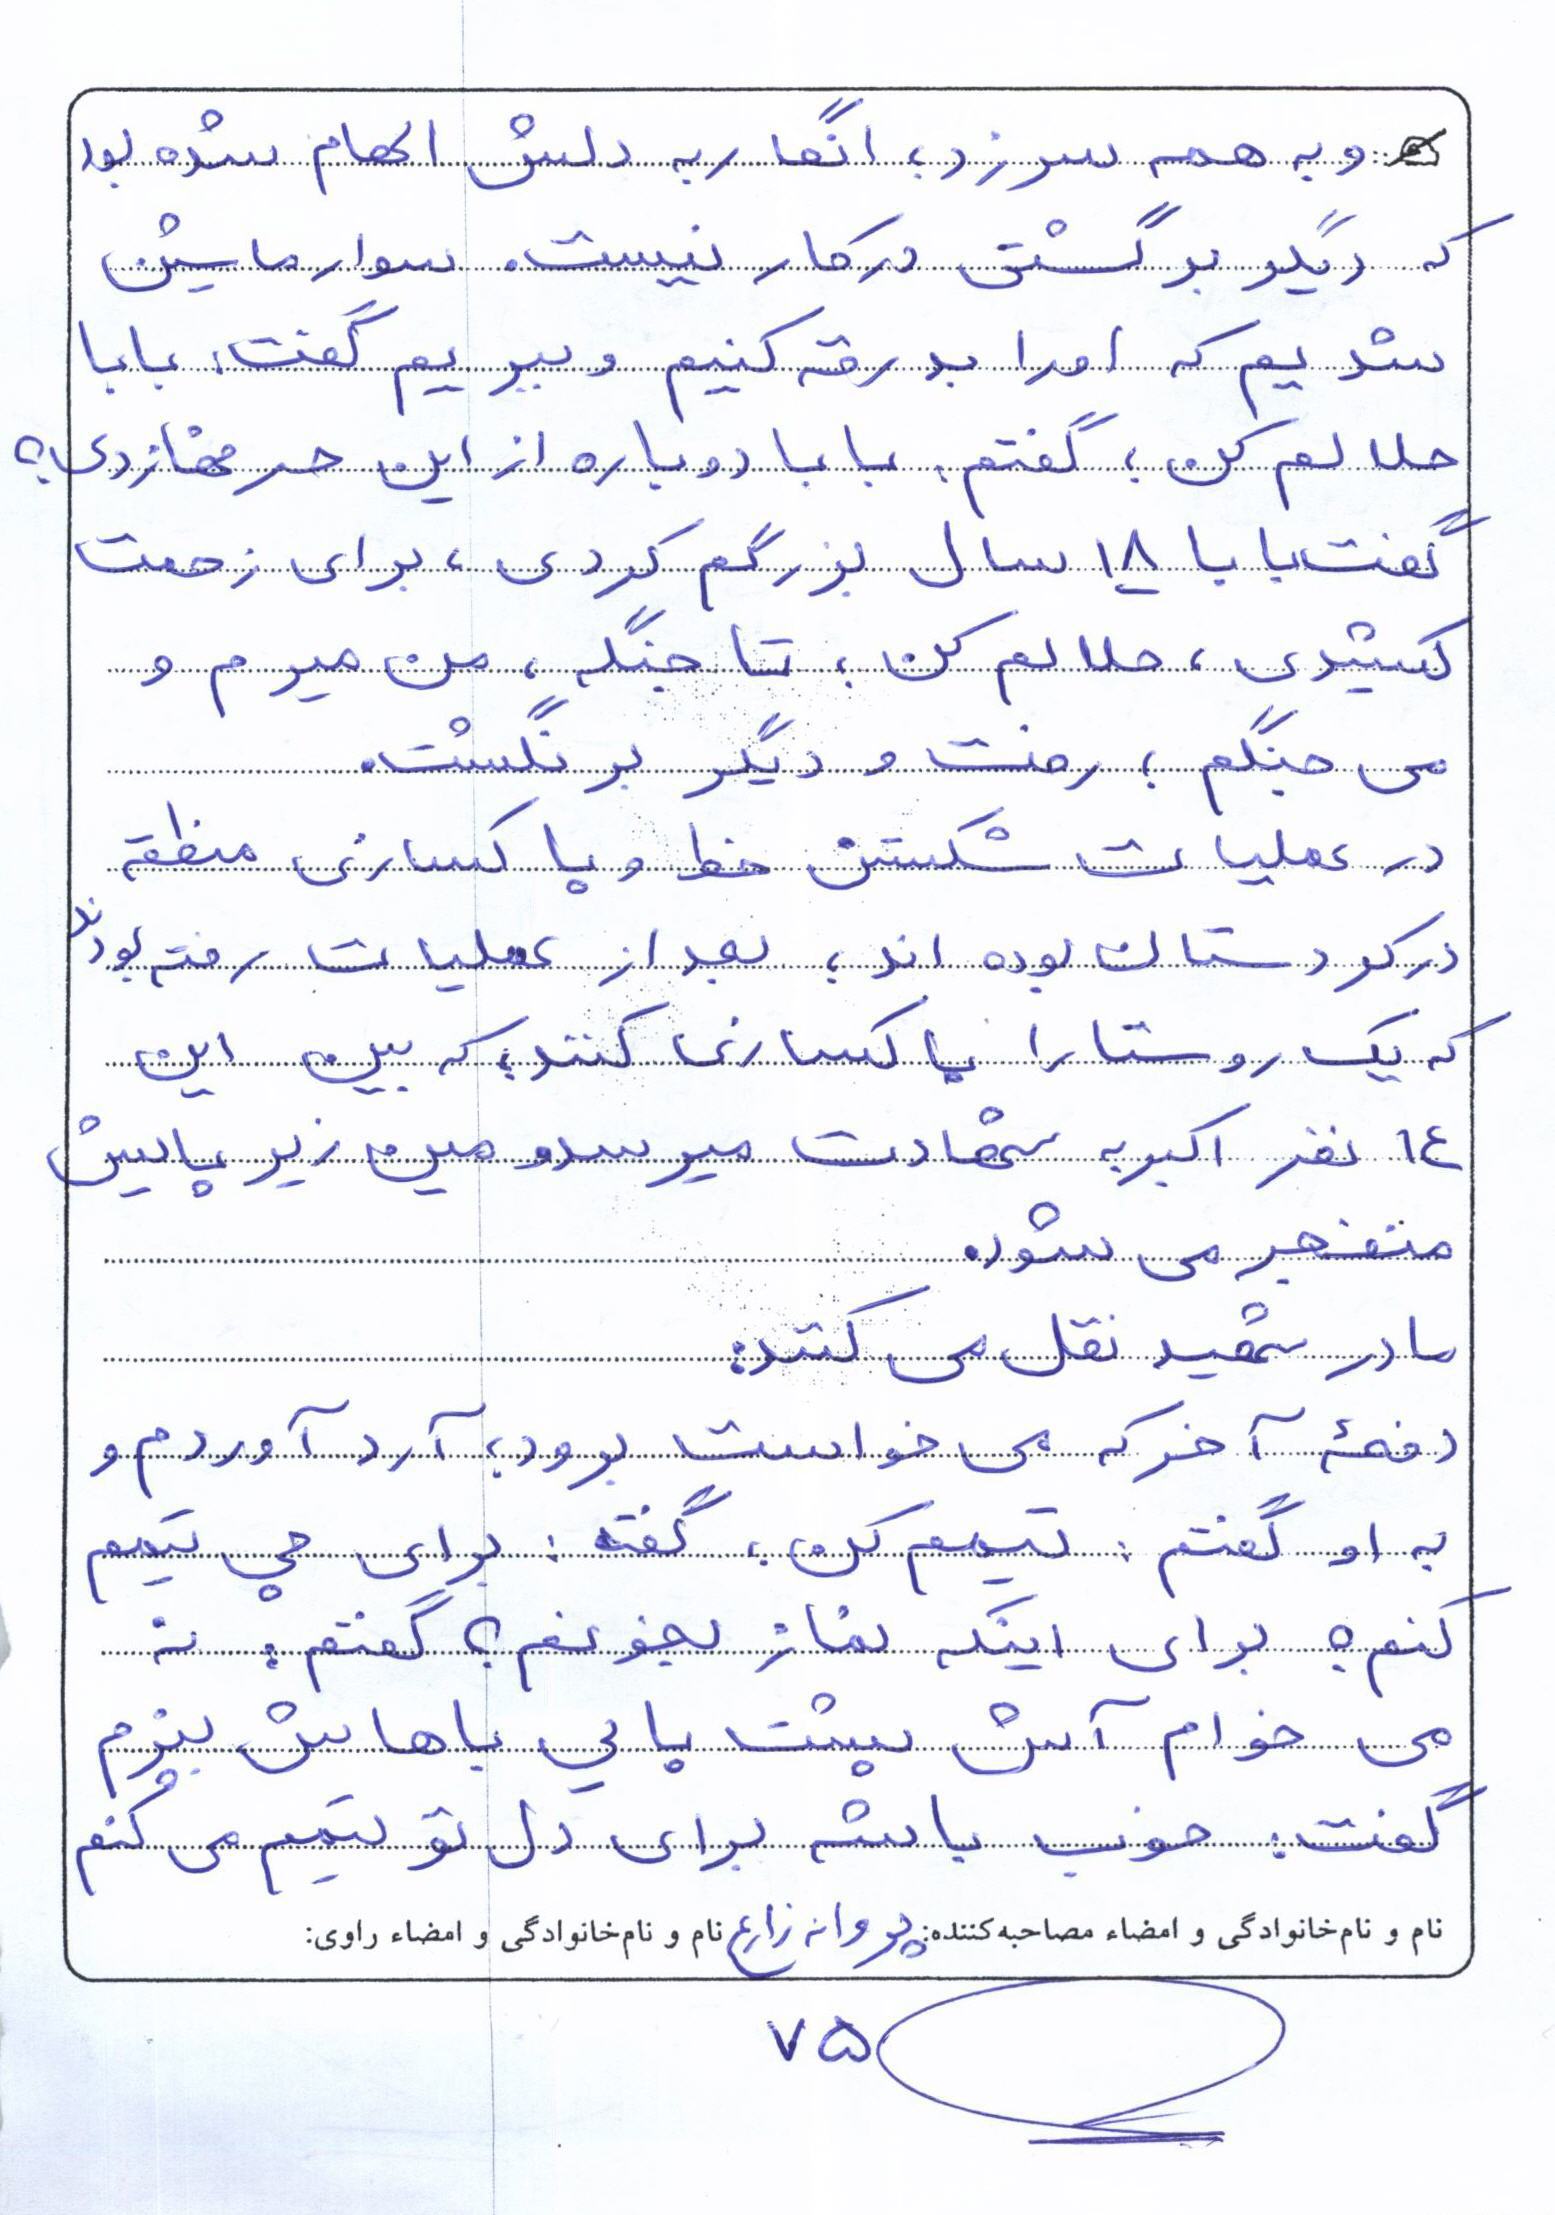 و به همه سر زد، انگار به دلش الهام شده بود
که دیگر برگشتی در کار نیست. سوار ماشین
شدیم که او را بدرقه کنیم و ببریم گفت: بابا
حلالم کن؛ گفتم: بابا دوباره از این حرفها زدی؟
گفت بابا ۱۸ سال بزرگم کردی، برای زحمت
کشیدی، حلالم کن؛ تا جنگه، من میرم و
می جنگم؛ رفت و دیگر برنگشت.
در عملیات شکستن خط و پاکسازی منطقه
در کردستان بوده اند؛ بعد از عملیات رفته بودند
که یک روستا را پاکسازی کنند؛ که بین این
۱٤ نفر اکبر به شهادت میرسد و مین زیر پایش
منفجر می شود.
مادر شهید نقل می کند:
دفعهٔ آخر که می خواست برود، آرد آوردم و
به او گفتم: تیمم کن، گفته: برای چی تیمم
کنم؟ برای اینکه نماز بخونم؟ گفتم: نه
می خوام آش پشت پایی باهاش بپزم
گفت: خوب باشه برای دل تو تیمم می کنم
نام و نام‌خانوادگی و امضاء مصاحبه‌کننده: پروانه زارع نام و نام‌خانوادگی و امضاء راوی:
۷۵